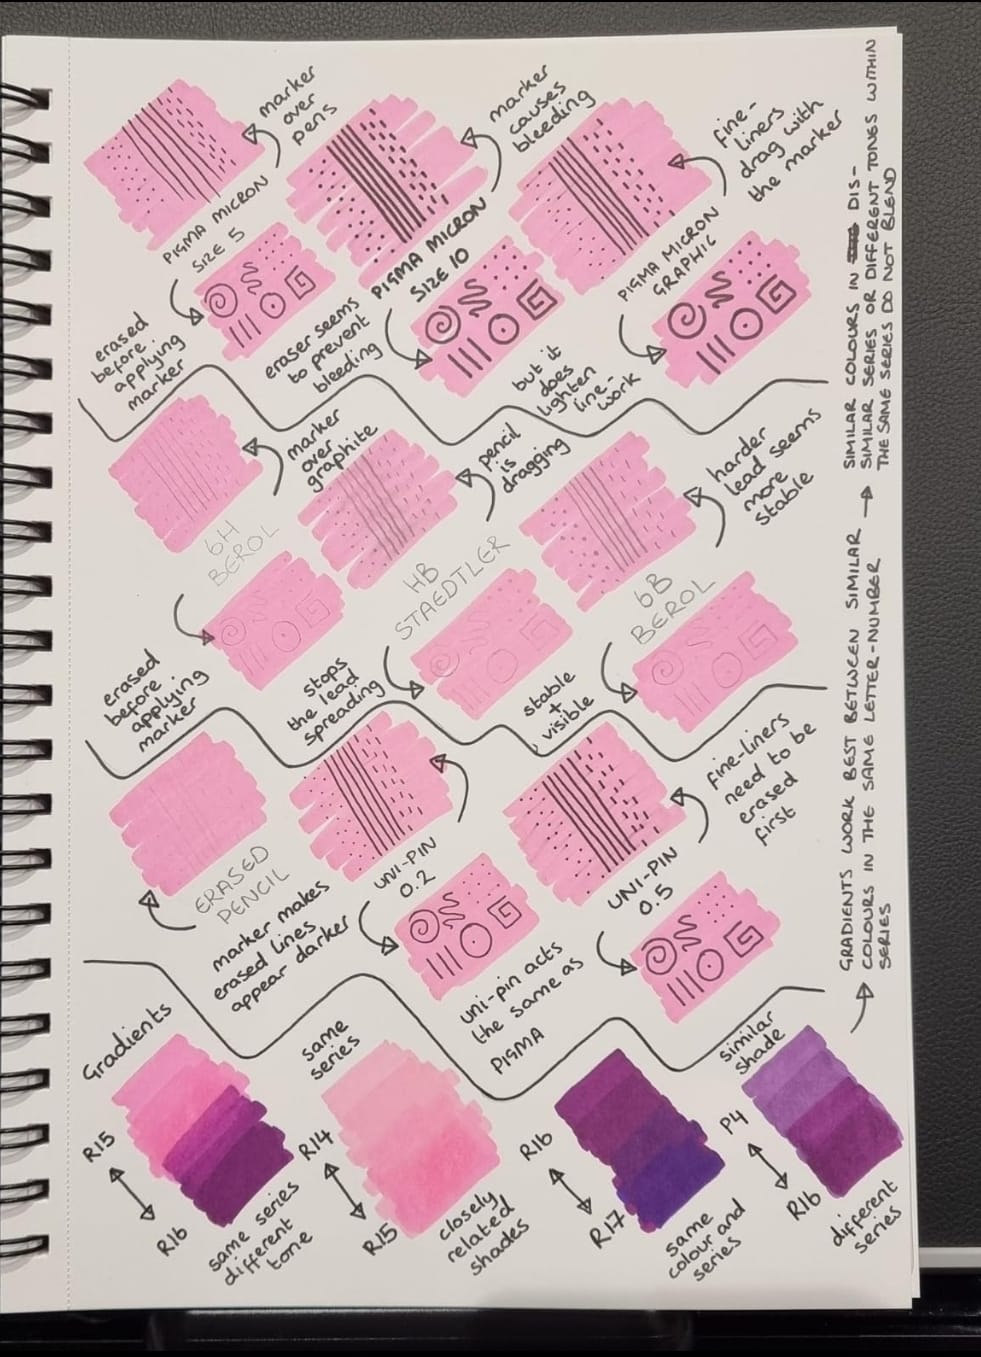 marker
over
pens
PIGMA MICRON
SIZE 5
erased
before
applying
marker
marker
causes
bleeding
PIGMA MICRON
SIZE 10
eraser seems
to prevent
bleeding
fine-
liners
drag with
the marker
PIGMA MICRON
GRAPHIC
but it
does
lighten
line-
work
marker
over
graphite
6H
BEROL
erased
before
applying
marker
pencil
is
dragging
HB
STAEDTLER
stops
the lead
spreading
harder
lead seems
more
stable
6B
BEROL
stable
+
visible
ERASED
PENCIL
marker makes
erased lines
appear darker
UNI-PIN
0.2
uni-pin acts
the same as
PIGMA
fine-liners
need to be
erased
first
UNI-PIN
0.5
Gradients
R15
R16
same series
different
tone
same
series
R14
R15
closely
related
shades
R16
R17
same
colour and
series
similar
shade
P4
R16
different
series
GRADIENTS WORK BEST BETWEEN SIMILAR
COLOURS IN THE SAME LETTER-NUMBER
SERIES
SIMILAR COLOURS IN DIS-
SIMILAR SERIES OR DIFFERENT TONES WITHIN
THE SAME SERIES DO NOT BLEND